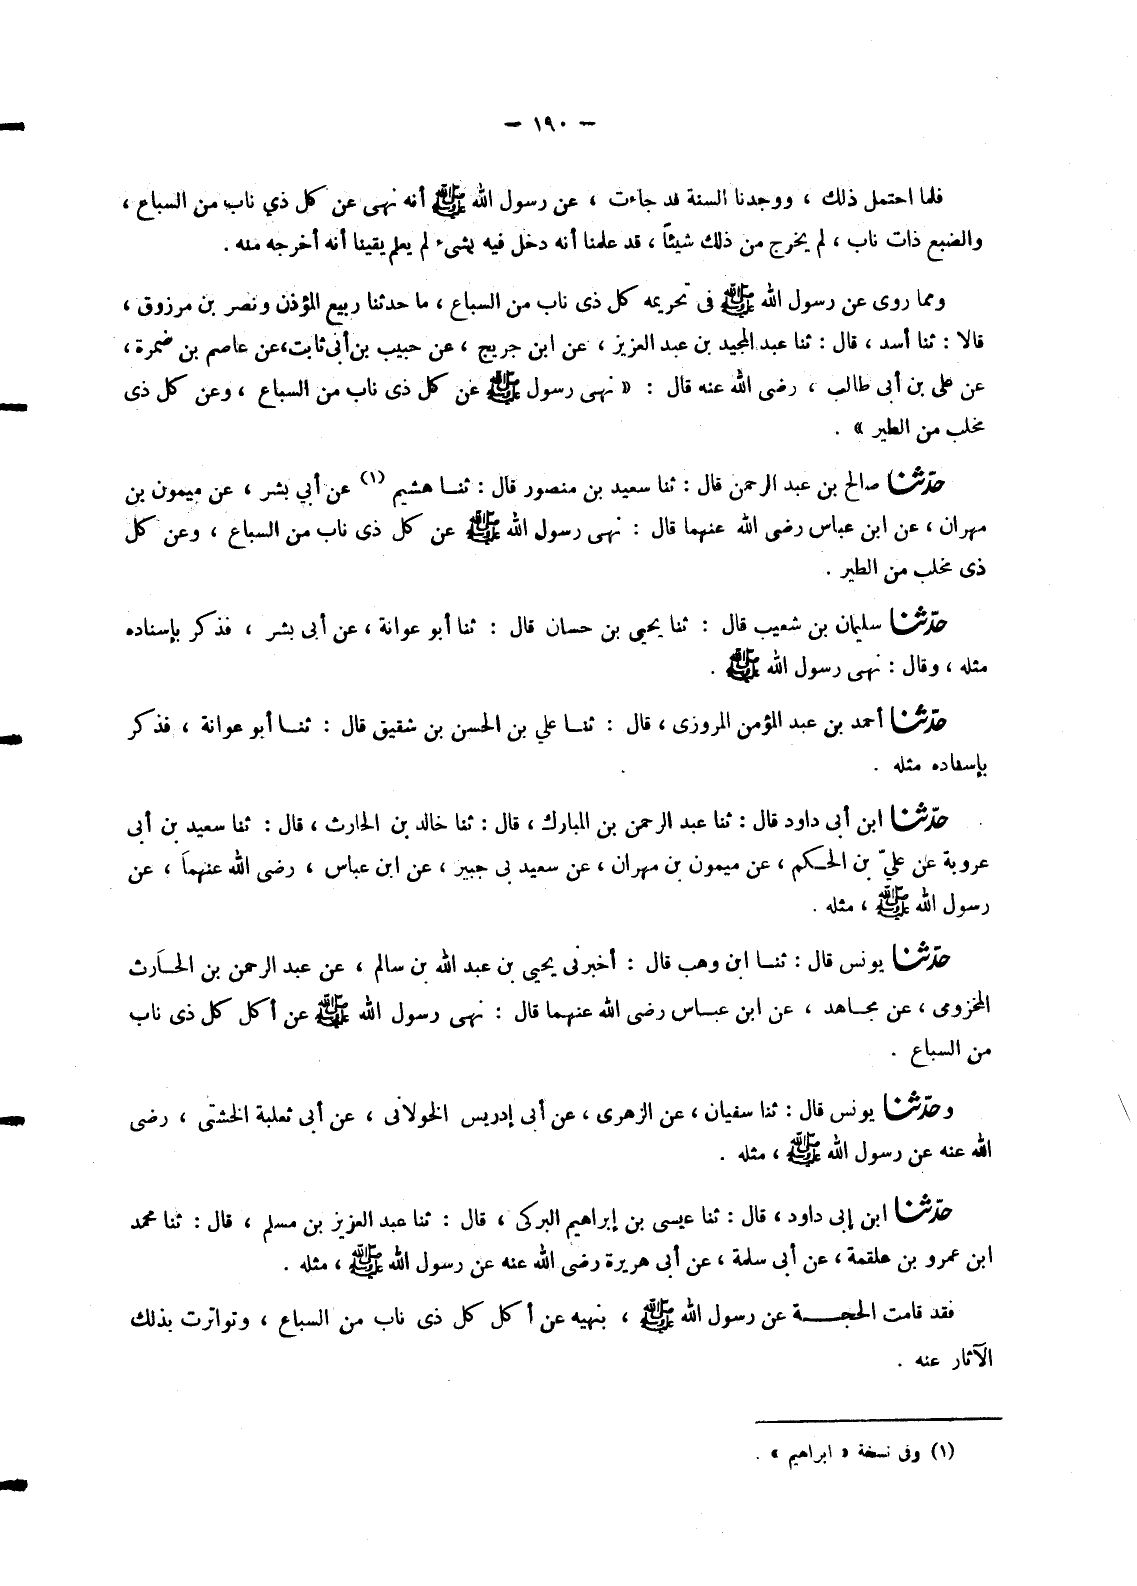 — ١٩٠ —
فلما احتمل ذلك ، ووجدنا السنة قد جاءت ، عن رسول الله ﷺ أنه نهى عن كل ذي ناب من السباع ،
والضبع ذات ناب ، لم يخرج من ذلك شيئاً ، قد علمنا أنه دخل فيه بشىء لم يعلم يقينا أنه أخرجه منه .
ومما روى عن رسول الله ﷺ فى تحريمه كل ذى ناب من السباع ، ما حدثنا ربيع المؤذن ونصر بن مرزوق ،
قالا : ثنا أسد ، قال : ثنا عبد المجيد بن عبد العزيز ، عن ابن جريج ، عن حبيب بن أبى ثابت، عن عاصم بن ضمرة ،
عن على بن أبى طالب ، رضى الله عنه قال : « نهى رسول ﷺ عن كل ذى ناب من السباع ، وعن كل ذى
مخلب من الطير » .
حدّثنا صالح بن عبد الرحمن قال : ثنا سعيد بن منصور قال : ثنا هشيم (١) عن أبي بشر ، عن ميمون بن
مهران ، عن ابن عباس رضى الله عنهما قال : نهى رسول الله ﷺ عن كل ذى ناب من السباع ، وعن كل
ذى مخلب من الطير .
حدّثنا سليمان بن شعيب قال : ثنا يحيى بن حسان قال : ثنا أبو عوانة ، عن أبى بشر ، فذكر بإسناده
مثله ، وقال : نهى رسول الله ﷺ .
حدّثنا أحمد بن عبد المؤمن المروزى ، قال : ثنا علي بن الحسن بن شقيق قال : ثنا أبو عوانة ، فذكر
بإسناده مثله .
حدّثنا ابن أبى داود قال : ثنا عبد الرحمن بن المبارك ، قال : ثنا خالد بن الحارث ، قال : ثنا سعيد بن أبى
عروبة عن عليّ بن الحكم ، عن ميمون بن مهران ، عن سعيد بى جبير ، عن ابن عباس ، رضى الله عنهما ، عن
رسول الله ﷺ ، مثله .
حدّثنا يونس قال : ثنا ابن وهب قال : أخبرنى يحيى بن عبد الله بن سالم ، عن عبد الرحمن بن الحارث
المخزومى ، عن مجاهد ، عن ابن عباس رضى الله عنهما قال : نهى رسول الله ﷺ عن أكل كل ذى ناب
من السباع .
وحدّثنا يونس قال : ثنا سفيان ، عن الزهرى ، عن أبى إدريس الخولانى ، عن أبى ثعلبة الخشنى ، رضى
الله عنه عن رسول الله ﷺ ، مثله .
حدّثنا ابن إبى داود ، قال : ثنا عيسى بن إبراهيم البركى ، قال : ثنا عبد العزيز بن مسلم ، قال : ثنا محمد
ابن عمرو بن علقمة ، عن أبى سلمة ، عن أبى هريرة رضى الله عنه عن رسول الله ﷺ ، مثله .
فقد قامت الحجة عن رسول الله ﷺ ، بنهيه عن أكل كل ذى ناب من السباع ، وتواترت بذلك
الآثار عنه .
(١) وفى نسخة « ابراهيم » .